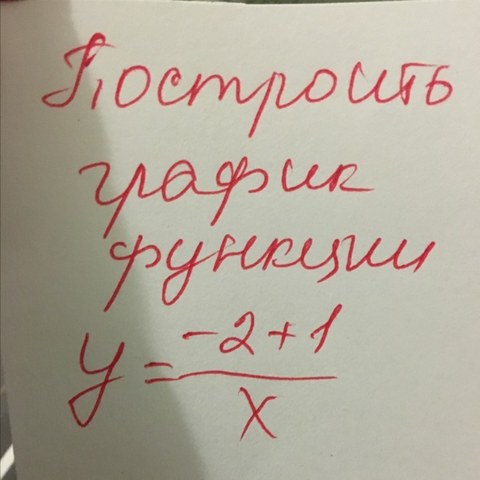 Построить
график
функции
y = \frac{-2+1}{x}